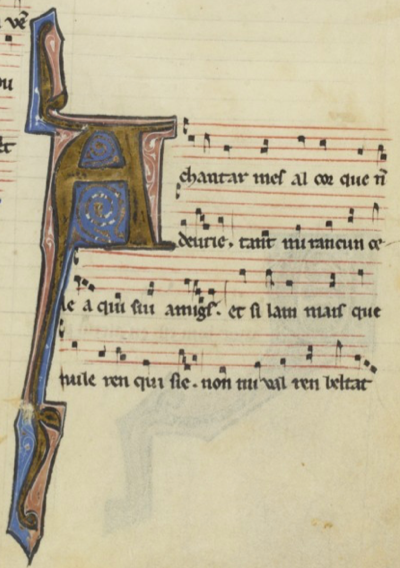 A
chantar mes al cor que n̄
deurie. tant mi rancun ce
le a qui sui amigs. et si lam mais que
nuile ren qui sie. non mi val ren beltat